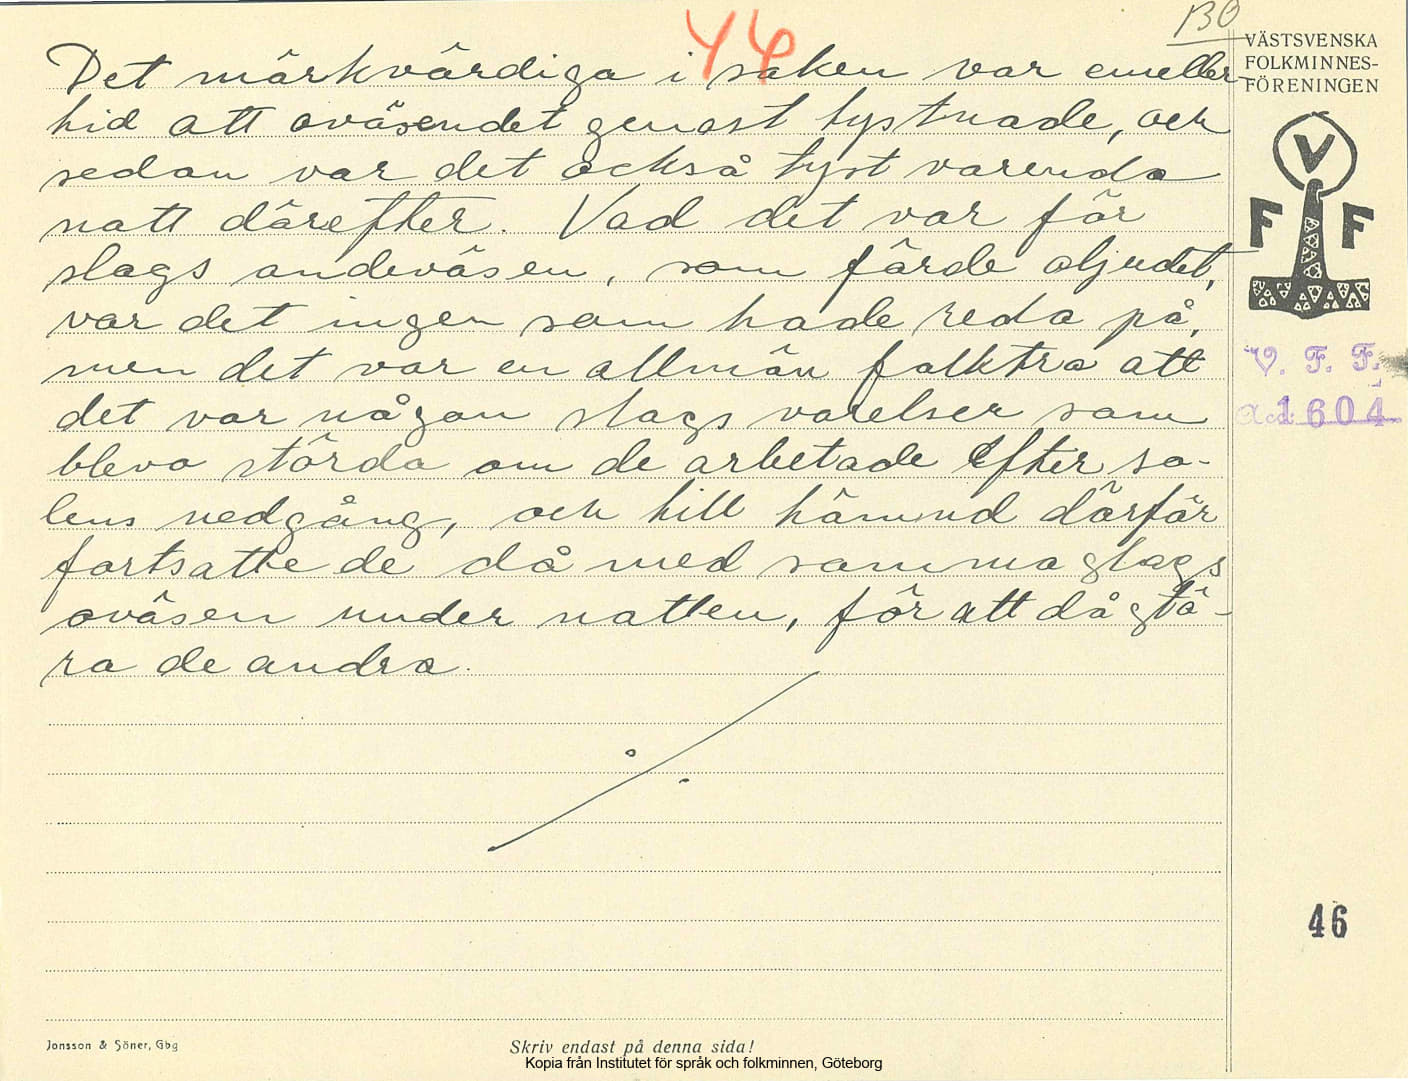 46
BO
Det märkvärdiga i saken var emeller-
tid att oväsendet genast tystnade, och
sedan var det också tyst varenda
natt därefter. Vad det var för
slags andeväsen, som förde oljudet,
var det ingen som hade reda på,
men det var en allmän folktro att
det var någon slags varelser som
blevo störda om de arbetade efter so-
lens nedgång, och till hämnd därför
fortsatte de då med samma slags
oväsen under natten, för att då stö-
ra de andra.
VÄSTSVENSKA
FOLKMINNES-
FÖRENINGEN
V
F F
V. F. F.
Acc: 1604
46
Jonsson & Söner, Gbg
Skriv endast på denna sida!
Kopia från Institutet för språk och folkminnen, Göteborg